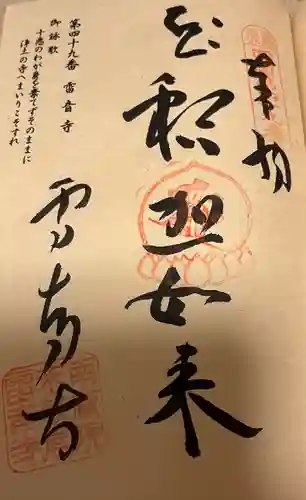 奉納
釈迦如来
雷音寺
第四十九番 雷音寺
御詠歌
十悪のわが身を棄てずそのままに
浄土の寺へまいりこそすれ